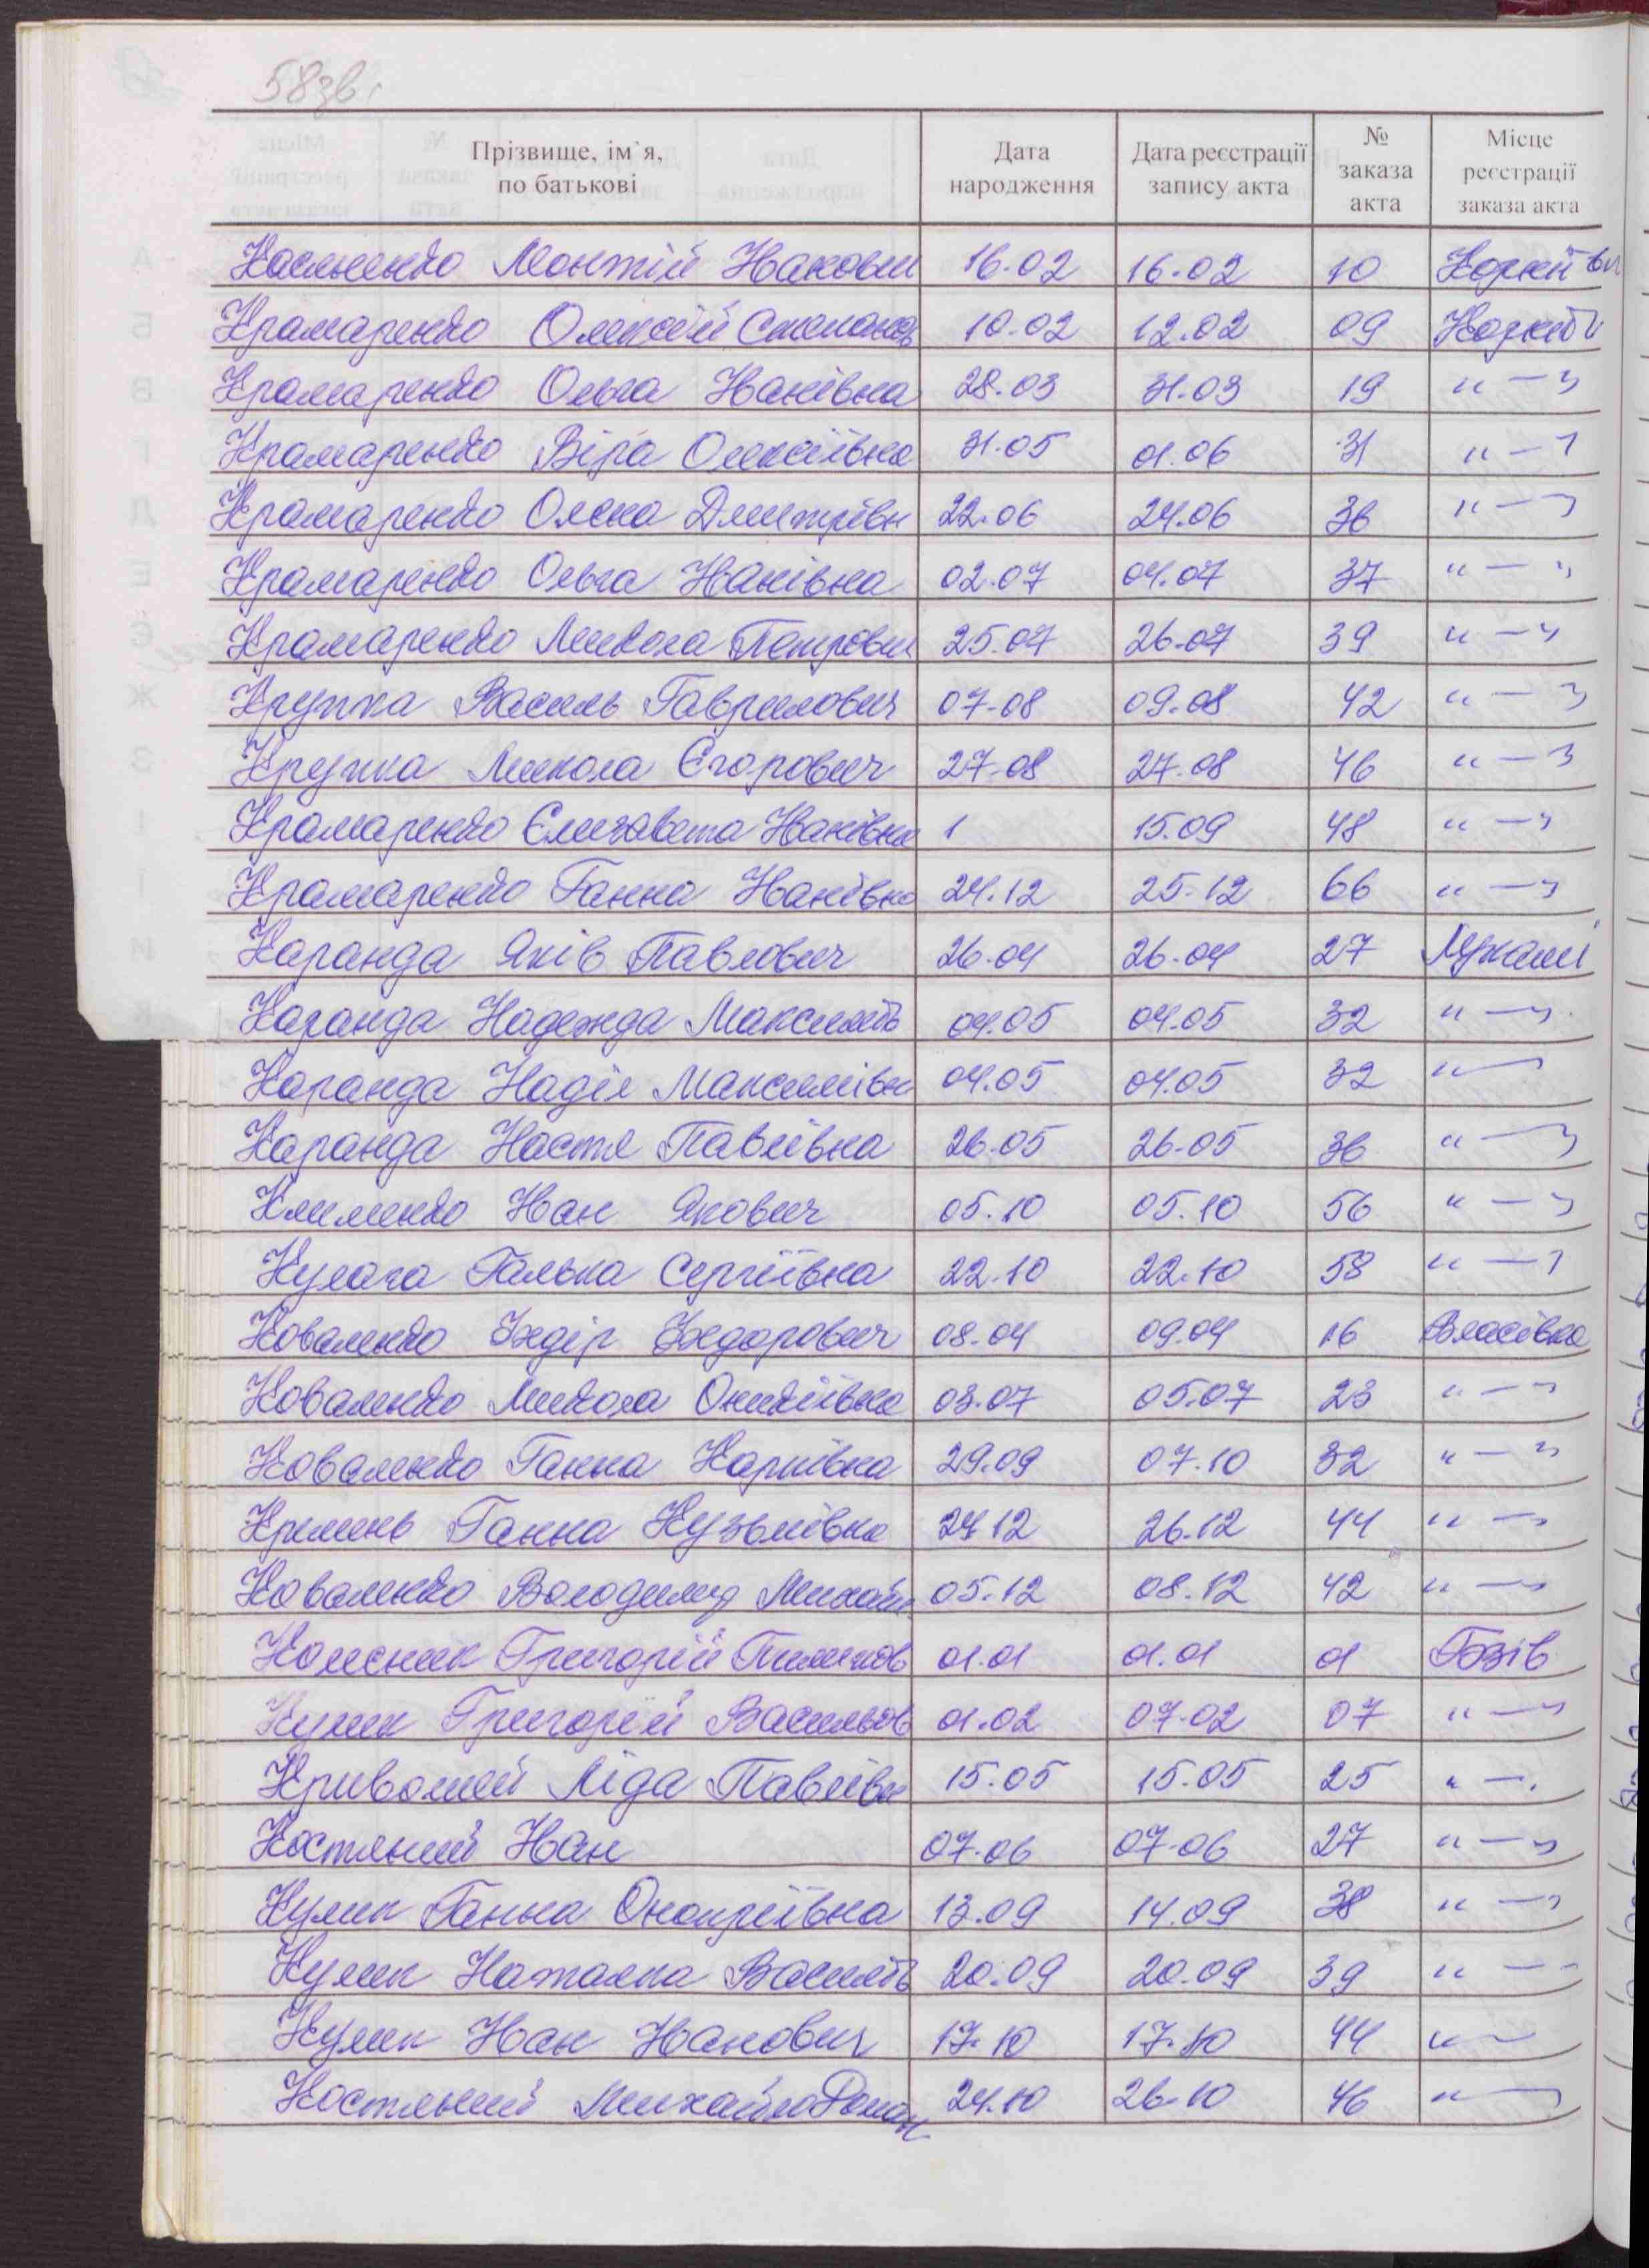 58зв.
Прізвище, ім`я, по батькові | Дата народження | Дата реєстрації запису акта | № заказа акта | Місце реєстрації заказа акта
Леонтій 16.02 16.02 10
Крамаренко Олексій 10.02 12.02 09
Крамаренко Ольга Іванівна 28.03 31.03 19 " — "
Крамаренко Віра Олексіївна 31.05 01.06 31 " — "
Крамаренко Олена Дмитрівн 22.06 24.06 36 " — "
Крамаренко Ольга Іванівна 02.07 04.07 37 " — "
Крамаренко Микола Петрович 25.07 26.07 39 " — "
Крупка Василь Гаврилович 07.08 09.08 42 " — "
Крупка Микола Єгорович 27.08 27.08 46 " — "
Крамаренко Єлизавета Іванівна 1 15.09 48 " — "
Крамаренко Ганна Іванівна 24.12 25.12 66 " — "
Каранда Яків Павлович 26.04 26.04 27
Каранда Надежда Максимів 04.05 04.05 32 " — "
Каранда Надія Максимівн 04.05 04.05 32 " — "
Каранда Настя Павлівна 26.05 26.05 36 " — "
Клименко Іван Якович 05.10 05.10 56 " — "
Кулага Галька Сергіївна 22.10 22.10 58 " — "
Коваленко Федір Федорович 08.04 09.04 16 Власівка
Коваленко Микола 03.07 05.07 23 " — "
Коваленко Ганна Карпівна 29.09 07.10 32 " — "
Кремень Ганна Кузьмівна 24.12 26.12 44 " — "
Коваленко Володимир Михайл 05.12 08.12 42 " — "
Колісник Григорій 01.01 01.01 01
Кулик Григорій Васильов 01.02 07.02 07 " — "
Кривошей Ліда Павлівн 15.05 15.05 25 " — "
Костяний Іван 07.06 07.06 27 " — "
Кулик Ганна Онопріївна 13.09 14.09 38 " — "
Кулик Наталка Василів 20.09 20.09 39 " — "
Кулик Іван Іванович 17.10 17.10 44 " — "
Михайло Роман 24.10 26.10 46 " — "